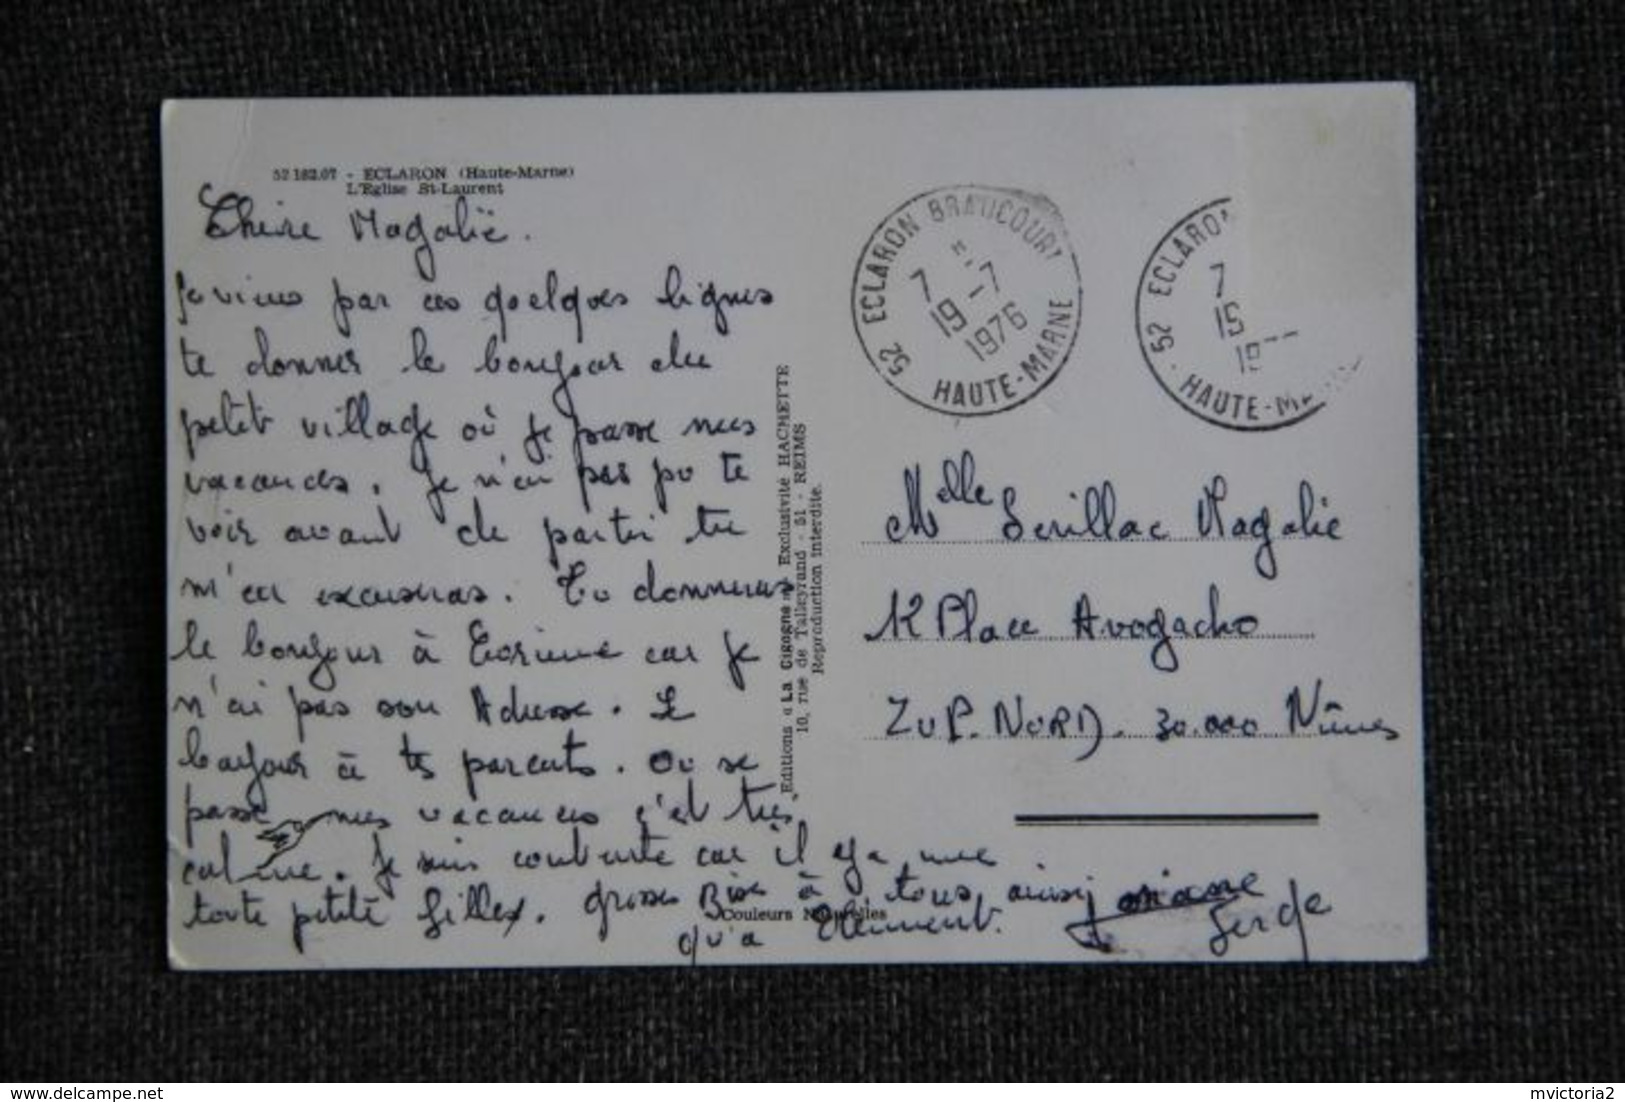 52 182.07 - ECLARON (Haute-Marne)
L'Eglise St-Laurent
Chère Magalie.
Je viens par ces quelques lignes
te donner le bonjour du
petit village où je passe mes
vacances. Je n'ai pas pu te
voir avant de partir tu
m'en excuseras. Tu donneras
le bonjour à Corinne car je
n'ai pas son Adresse. Le
bonjour à tes parents. Ou se
passe mes vacances c'est très
calme. Je suis contente car il y a une
toute petite fille. grosses Bises à tous ainsi
qu'a Clément.
Serge
Couleurs Naturelles
Editions « La Cigogne » Exclusivité HACHETTE
10, rue de Talleyrand - 51 - REIMS
Reproduction interdite.
52 ECLARON BRAUCOURT
7 H.
19-7
1976
HAUTE-MARNE
52 ECLARON
7
HAUTE-MA
Melle Serillac Magalie
Place Avogacho
ZUP. NORD. 30.000 Nîmes
mvictoria2